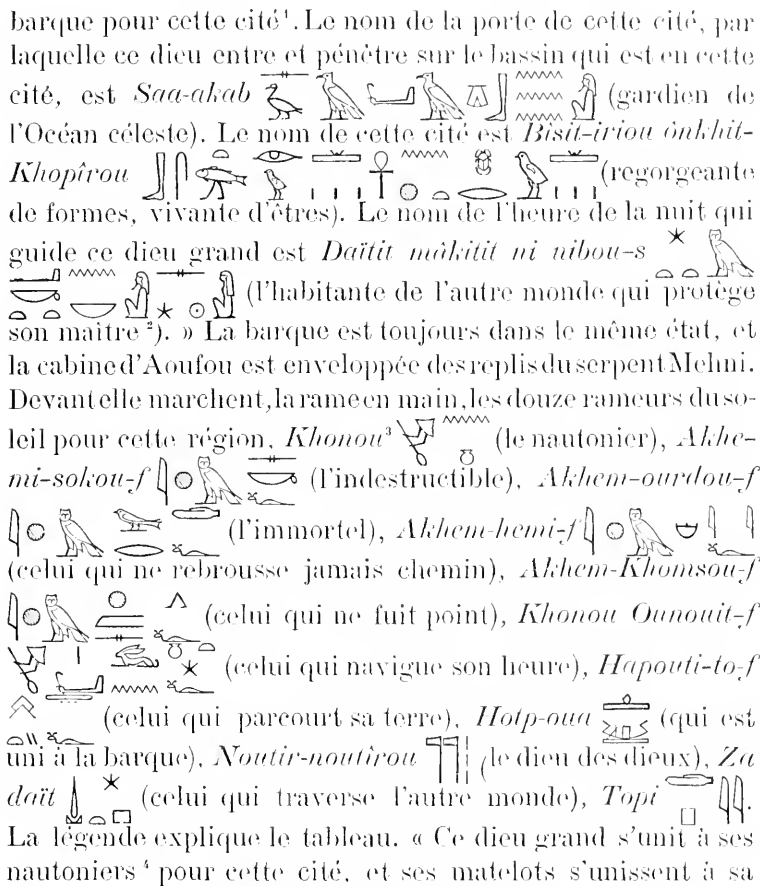 barque pour cette cité¹. Le nom de la porte de cette cité, par
laquelle ce dieu entre et pénètre sur le bassin qui est en cette
cité, est Saa-akab (gardien de
l'Océan céleste). Le nom de cette cité est Bisit-iriou ônkhit-
Khopîrou (regorgeante
de formes, vivante d'êtres). Le nom de l'heure de la nuit qui
guide ce dieu grand est Daïtit mâkitit ni nibou-s
(l'habitante de l'autre monde qui protège
son maitre ²). » La barque est toujours dans le même état, et
la cabine d'Aoufou est enveloppée des replis du serpent Mehni.
Devant elle marchent, la rame en main, les douze rameurs du so-
leil pour cette région, Khonou³ (le nautonier), Akhe-
mi-sokou-f (l'indestructible), Akhem-ourdou-f
(l'immortel), Akhem-hemi-f
(celui qui ne rebrousse jamais chemin), Akhem-Khomsou-f
(celui qui ne fuit point), Khonou Ounouit-f
(celui qui navigue son heure), Hapouti-to-f
(celui qui parcourt sa terre), Hotp-oua (qui est
uni à la barque), Noutir-noutîrou (le dieu des dieux), Za
daït (celui qui traverse l'autre monde), Topi .
La légende explique le tableau. « Ce dieu grand s'unit à ses
nautoniers ⁴ pour cette cité, et ses matelots s'unissent à sa